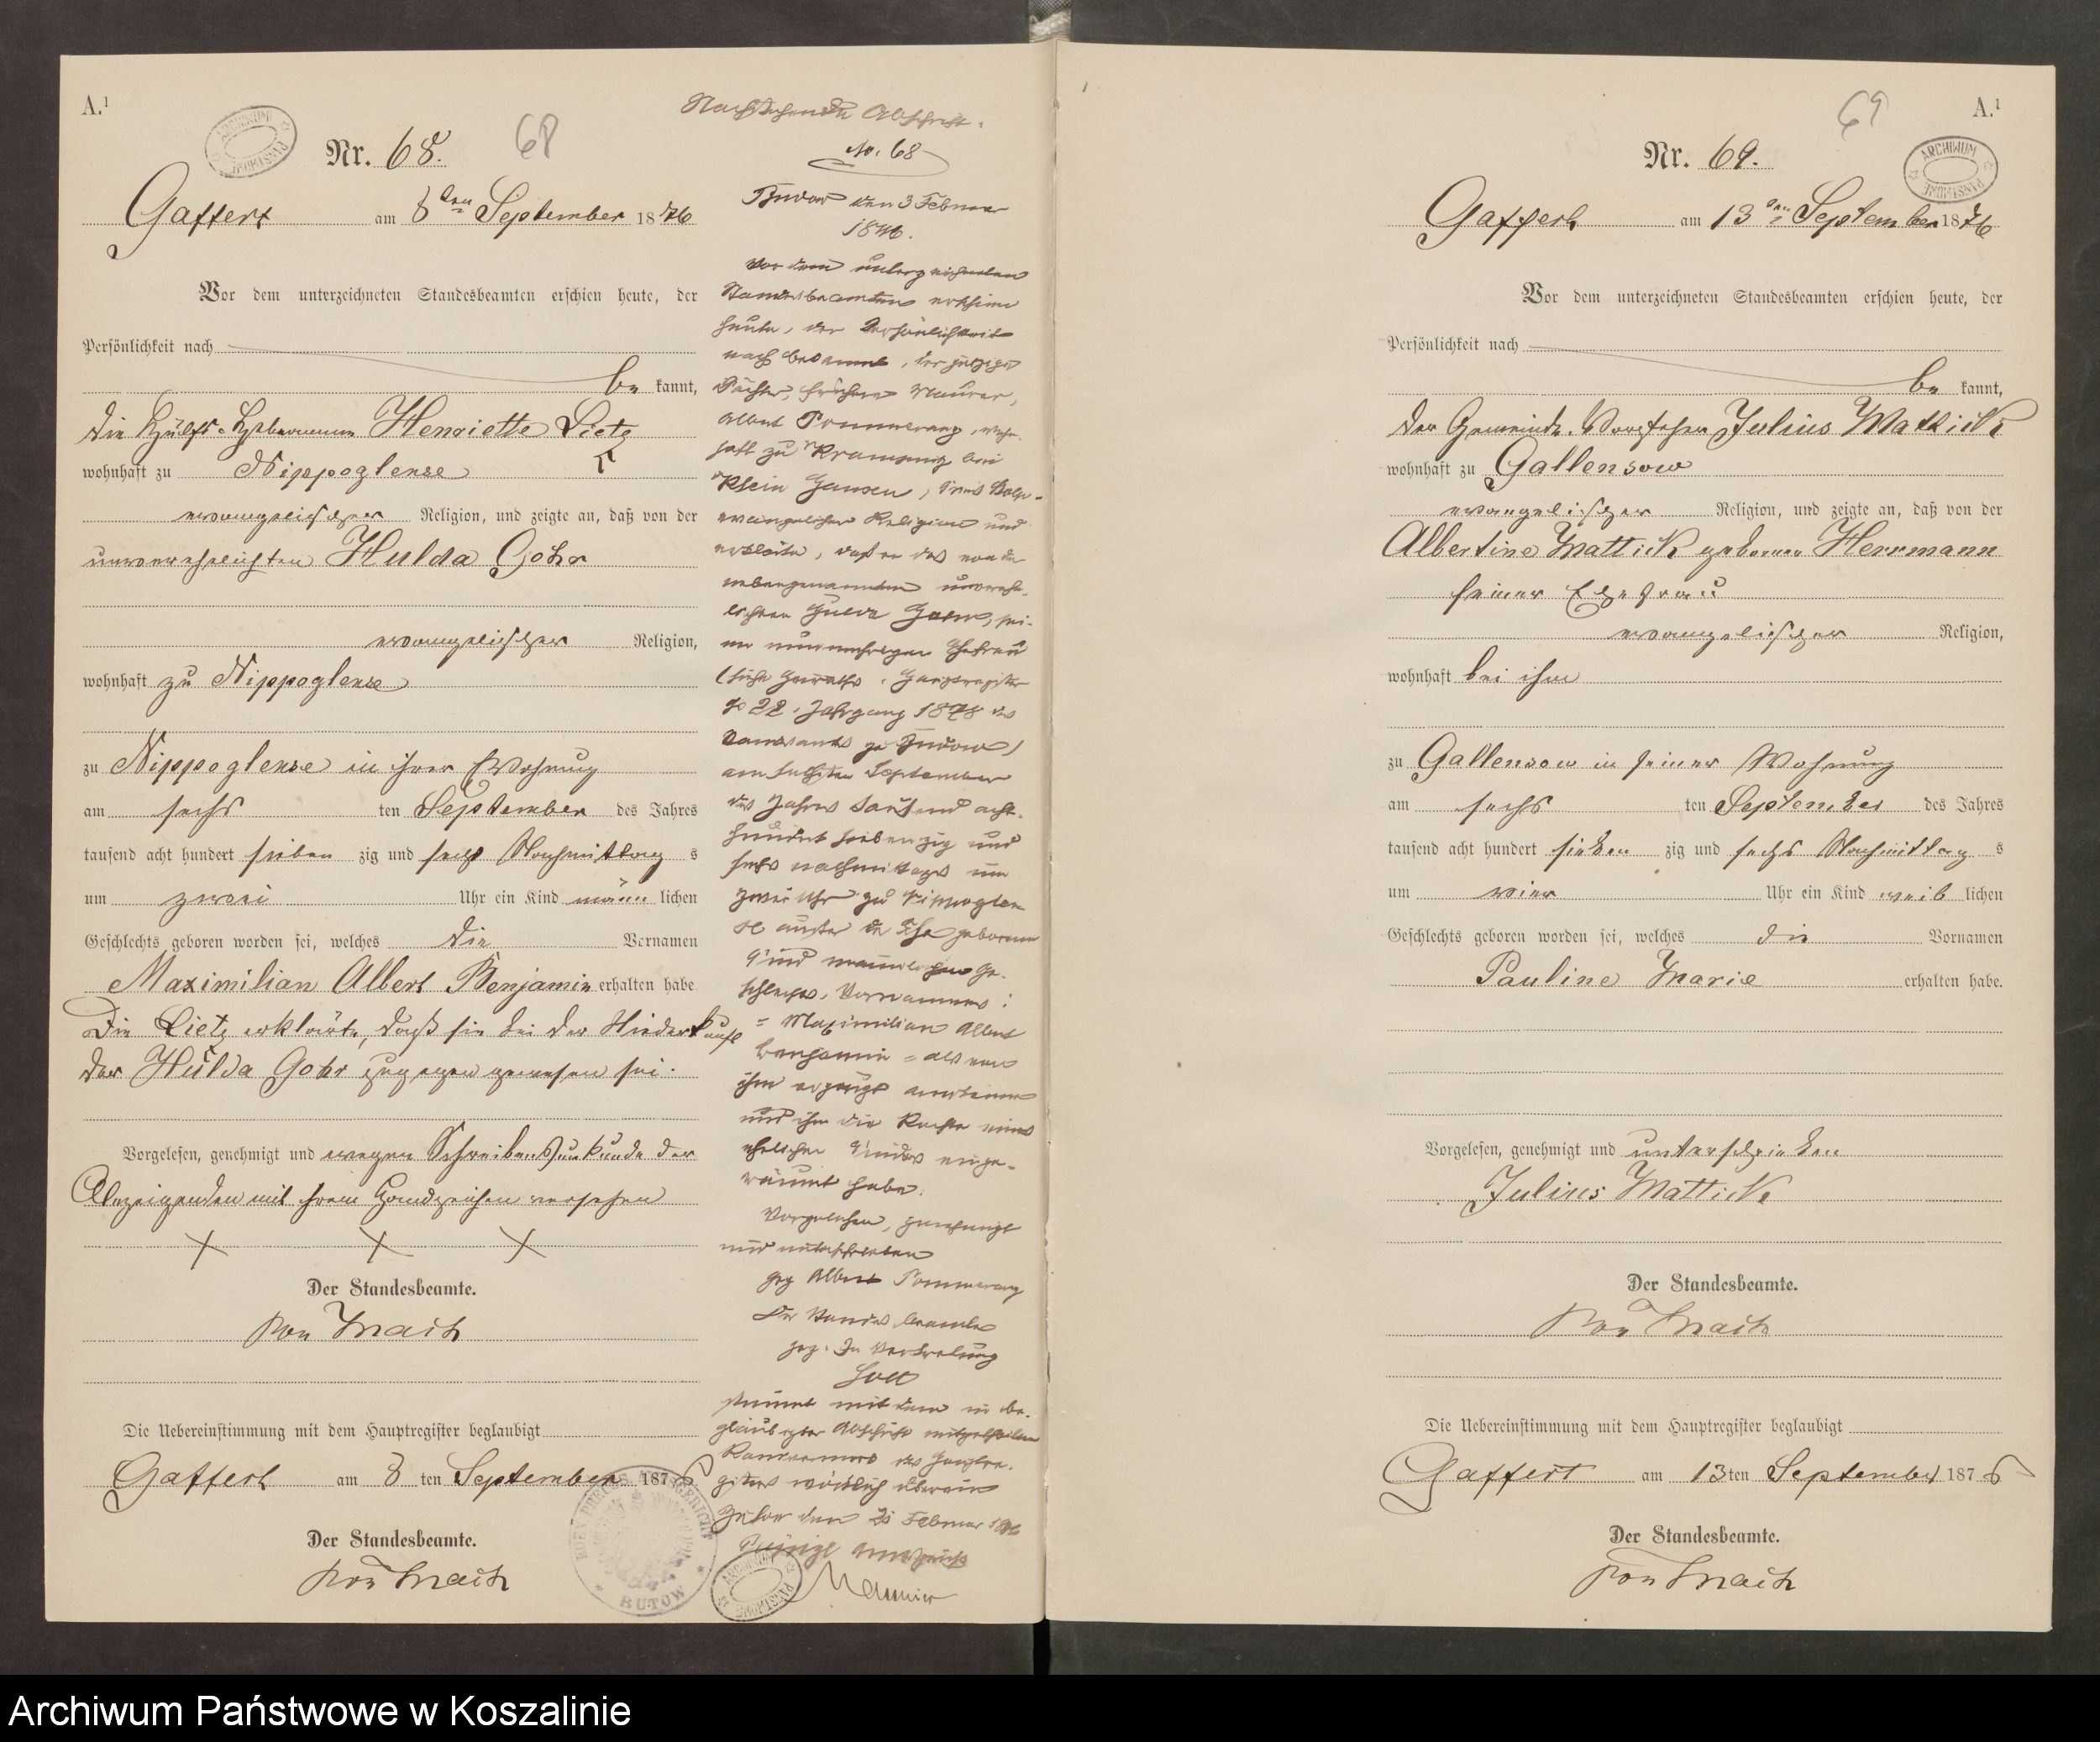 A.¹
ARCHIWUM PAŃSTWOWE
Nr. 68.
68
Gaffert am 8ten September 1876
Vor dem unterzeichneten Standesbeamten erschien heute, der
Persönlichkeit nach
be kannt,
die Hülfs-Hebamme Henriette Lietz
wohnhaft zu Nippoglense
evangelischer Religion, und zeigte an, daß von der
unverehelichten Hulda Gohr
evangelischer Religion,
wohnhaft zu Nippoglense
zu Nippoglense in ihrer Wohnung
am sechs ten September des Jahres
tausend acht hundert sieben zig und sechs Nachmittag s
um zwei Uhr ein Kind männ lichen
Geschlechts geboren worden sei, welches die Vornamen
Maximilian Albert Benjamin erhalten habe
Die Lietz erklärte, daß sie bei der Niederkunft
der Hulda Gohr zugegen gewesen sei.
Vorgelesen, genehmigt und wegen Schreibensunkunde der
Anzeigenden mit ihrem Handzeichen versehen
X X X
Der Standesbeamte.
von Mach
Die Uebereinstimmung mit dem Hauptregister beglaubigt
Gaffert am 8 ten September 1876
Der Standesbeamte.
von Mach
BUTOW
Nachstehende Abschrift.
No. 68
Butow den 3 Februar
Vor dem unterzeichneten
Standesbeamten erschien
heute, der Persönlichkeit
nach bekannt, der jetzige
Pächter, frühere Maurer,
Albert Pommerang, wohn-
haft zu Krampnitz bei
Klein Gansen, Kreis Stolp
evangelischer Religion und
erklärte, daß er das von der
nebengenannten unverehe-
lichten Hulda Gohr, sei-
ner nunmehrigen Ehefrau
(siehe Heiraths-Hauptregister
No 22, Jahrgang 1878 des
Standesamts zu Budow)
am sechsten September
des Jahres tausend acht-
hundert siebenzig und
sechs nachmittags um
zwei Uhr zu Nippoglen-
se außer der Ehe geborene
Kind männlichen Ge-
schlechts, Vornamens:
= Maximilian Albert
Benjamin = als von
ihm erzeugt anerkenne
und ihm die Rechte eines
ehelichen Kindes einge-
räumt habe.
Vorgelesen, genehmigt
und unterschrieben
gez Albert Pommerang
Der Standesbeamte
gez. In Vertretung
stimmt mit dem in be-
glaubigter Abschrift mitgetheilten
Randvermerk des Hauptre-
gisters wörtlich überein
Februar
ARCHIWUM PAŃSTWOWE
69
A.¹
Nr. 69.
ARCHIWUM PAŃSTWOWE
Gaffert am 13ten September 1876
Vor dem unterzeichneten Standesbeamten erschien heute, der
Persönlichkeit nach
be kannt,
der Gemeinde-Vorsteher Julius Mattick
wohnhaft zu Gallensow
evangelischer Religion, und zeigte an, daß von der
Albertine Mattick geborene Herrmann
seiner Ehefrau
evangelischer Religion,
wohnhaft bei ihm
zu Gallensow in seiner Wohnung
am sechs ten September des Jahres
tausend acht hundert sieben zig und sechs Nachmittag s
um vier Uhr ein Kind weib lichen
Geschlechts geboren worden sei, welches die Vornamen
Pauline Marie erhalten habe.
Vorgelesen, genehmigt und unterschrieben
Julius Mattick
Der Standesbeamte.
von Mach
Die Uebereinstimmung mit dem Hauptregister beglaubigt
Gaffert am 13ten September 1876
Der Standesbeamte.
von Mach
Archiwum Państwowe w Koszalinie